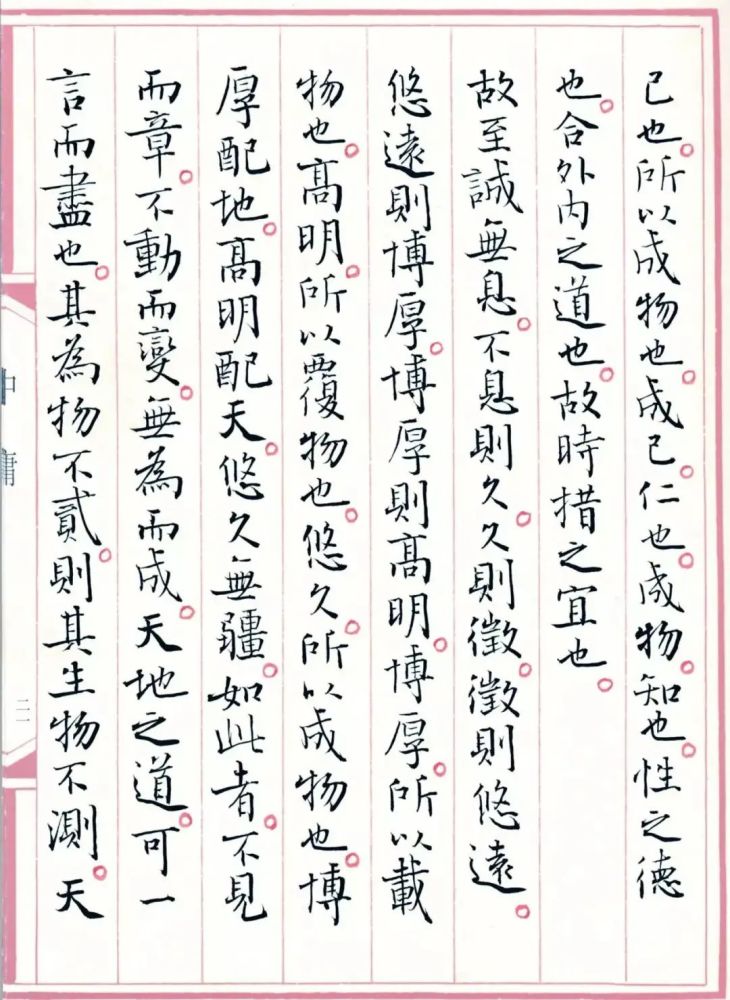 己也。所以成物也。成己。仁也。成物。知也。性之德
也。合外内之道也。故時措之宜也。
故至誠無息。不息則久。久則徵。徵則悠遠。
悠遠則博厚。博厚則高明。博厚。所以載
物也。高明。所以覆物也。悠久。所以成物也。博
厚配地。高明配天。悠久無疆。如此者。不見
而章。不動而變。無為而成。天地之道。可一
言而盡也。其為物不貳。則其生物不測。天
中庸
二一